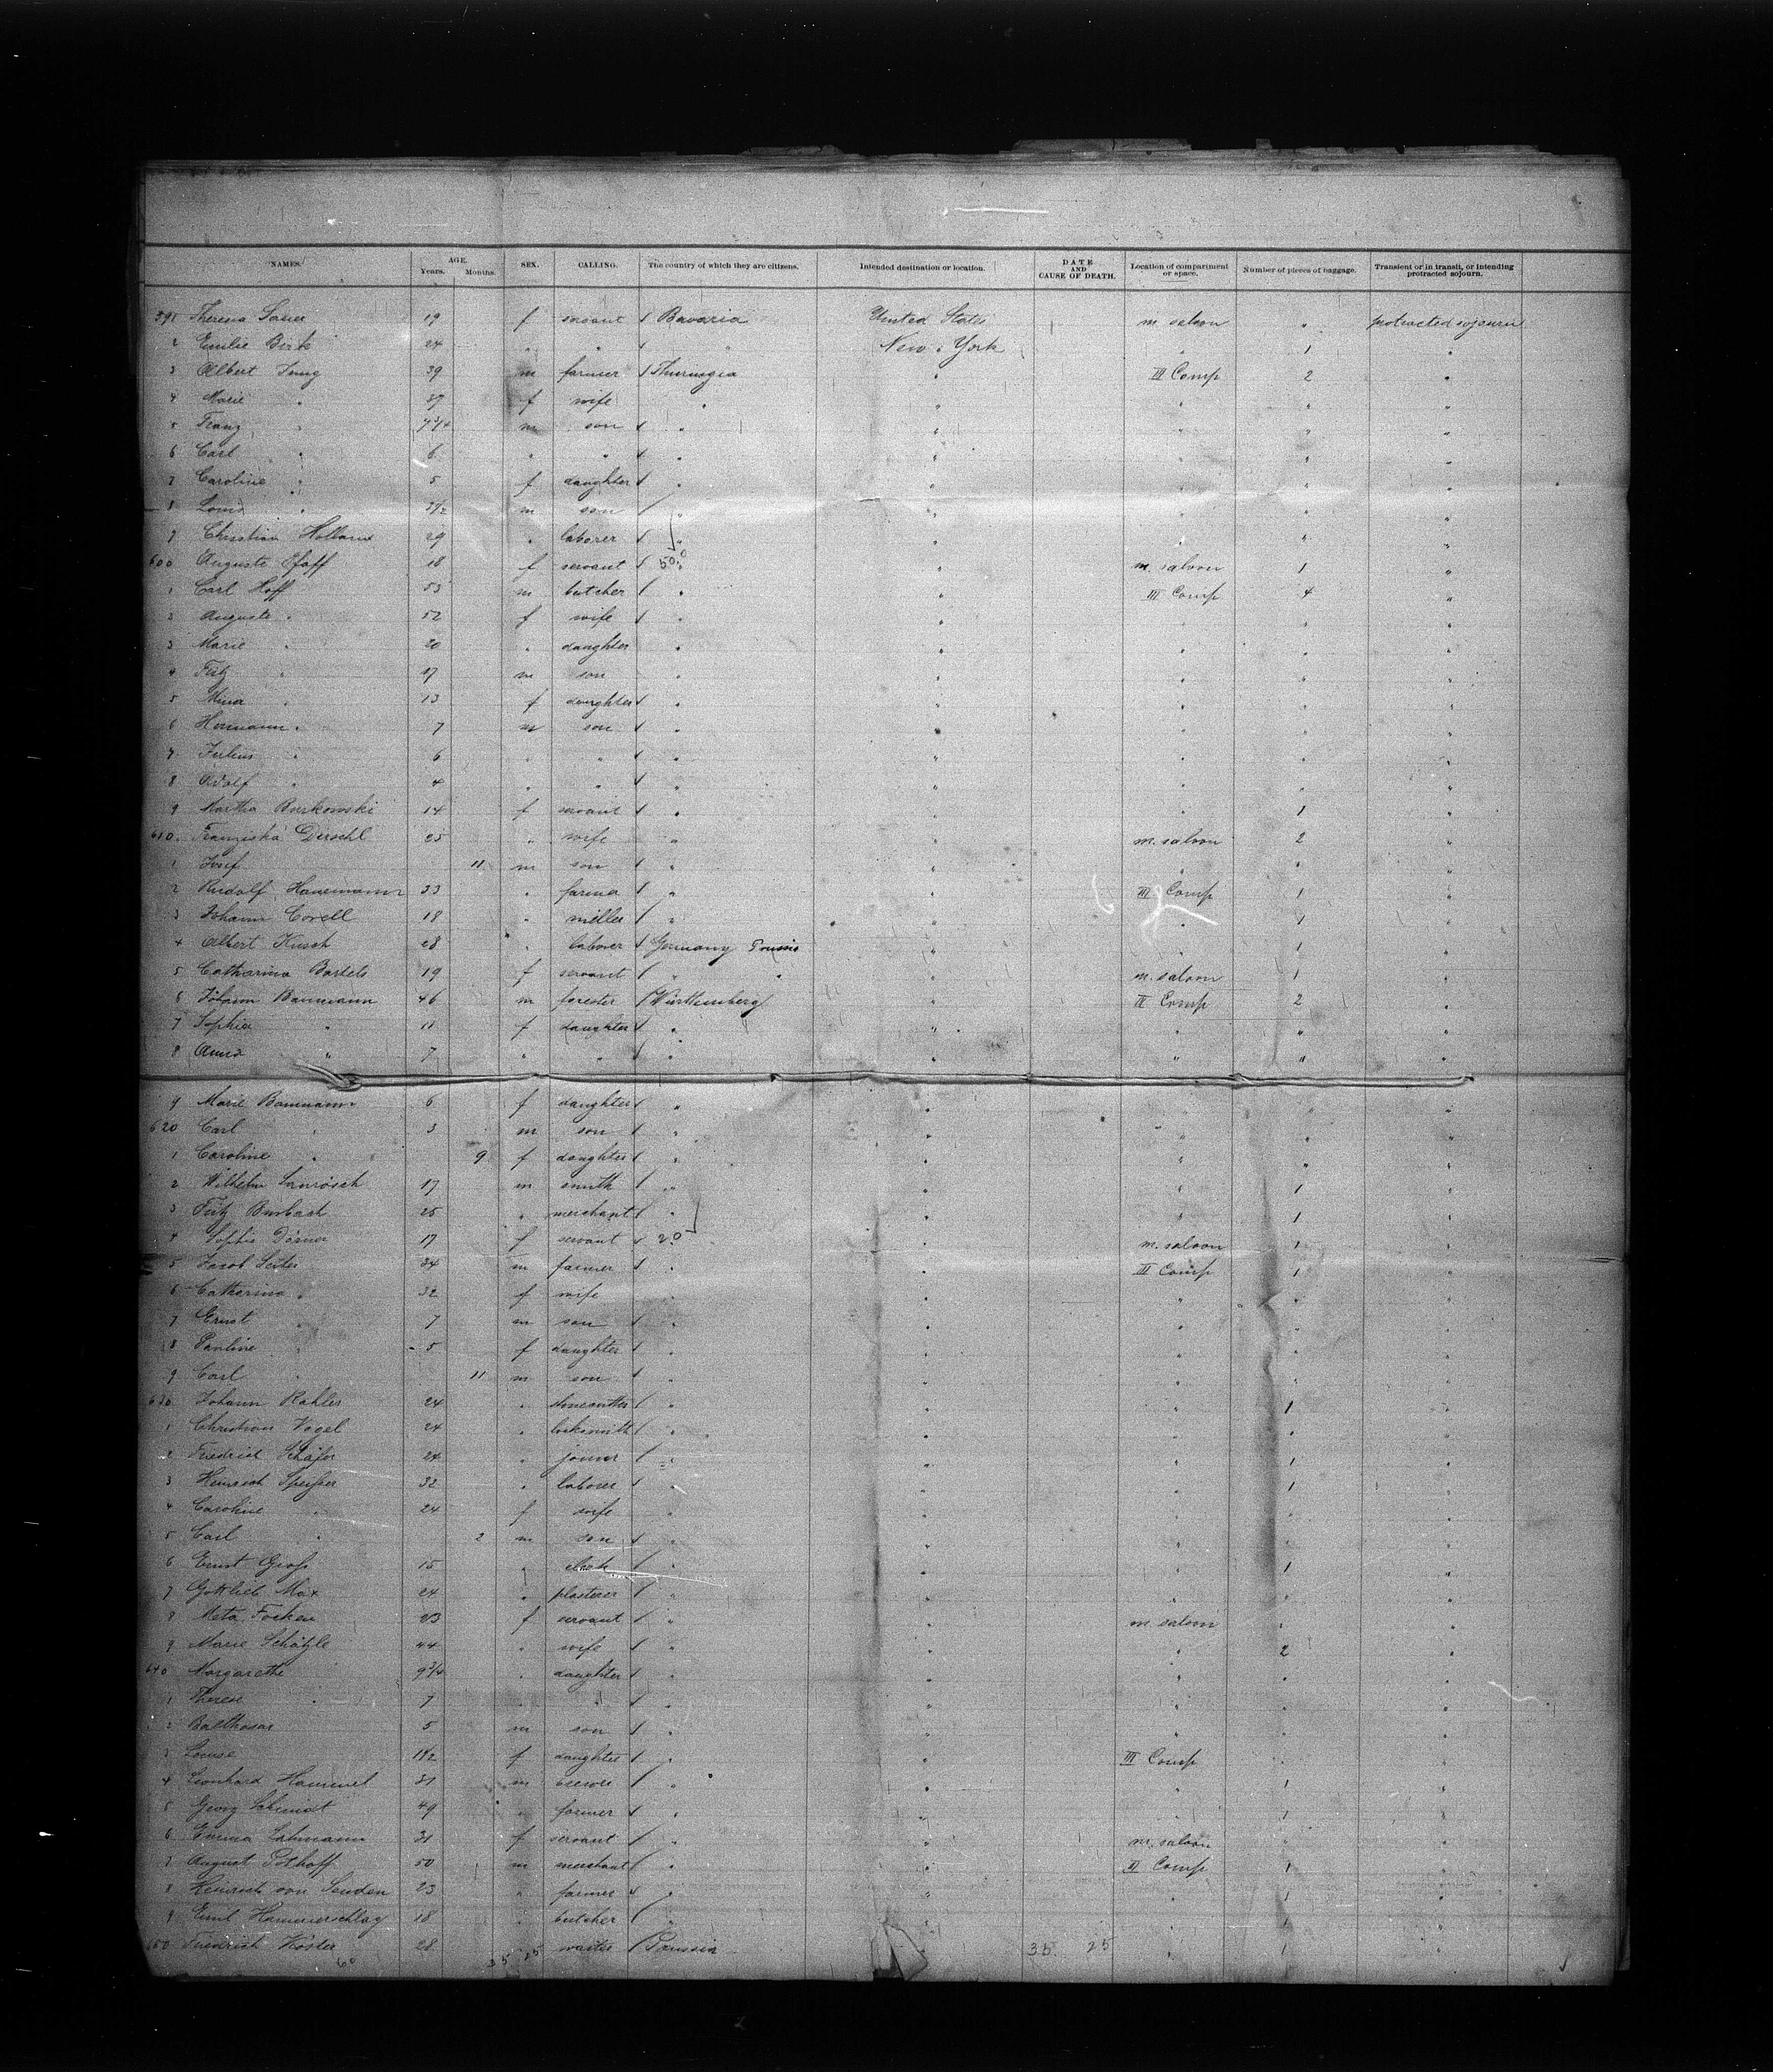 NAMES. AGE. Years. Months. SEX. CALLING. The country of which they are citizens. Intended destination or location. DATE AND CAUSE OF DEATH. Location of compartment or space. Number of pieces of baggage. Transient or in transit, or intending protracted sojourn.
591 Theresa Sauer 19 f servant Bavaria United States m. saloon " protracted sojourn
2 Emilie Birk 24 " " " New York " 1 "
3 Albert Jung 39 m farmer Thuringia " III Comp 2 "
4 Marie " 37 f wife " " " " "
5 Franz " m son " " " " "
6 Carl " 6 " " " " " " "
7 Caroline " 5 f daughter " " " " "
8 Louis " 2 1/2 m son " " " " "
9 Christian Holland 29 " laborer " " " " "
600 Auguste Pfaff 18 f servant 50 " m. saloon 1 "
1 Carl Hoff 53 m butcher " " III Comp 4 "
2 Auguste " 52 f wife " " " " "
3 Marie " 20 " daughter " " " " "
4 Fritz " 17 m son " " " " "
5 Mina " 13 f daughter " " " " "
6 Hermann " 7 m son " " " " "
7 Julius " 6 " " " " " " "
8 Adolf " 4 " " " " " " "
9 Martha Burkowski 14 f servant " " " 1 "
610 Franziska Derschl 25 " wife " " m. saloon 2 "
1 Josef 11 m son " " " " "
2 Rudolf Hanemann 33 " farmer " " III Comp 1 "
3 Johann Corell 18 " miller " " " 1 "
4 Albert Kusch 28 " laborer Germany Prussia " " 1 "
5 Catharina Bartels 19 f servant " " " m. saloon 1 "
6 Johann Baumann 46 m forester Württemberg " II Comp 2 "
7 Sophia " 11 f daughter " " " " "
8 Anna " 7 " " " " " " "
9 Marie Baumann 6 f daughter " " " " "
620 Carl " 3 m son " " " " "
1 Caroline " 9 f daughter " " " " "
2 Wilhelm 17 m smith " " " 1 "
3 Fritz Burbach 25 " merchant " " " 1 "
4 Sophie Dörner 17 f servant 20 " m. saloon 1 "
5 Jacob Seiter 34 m farmer " " III Comp 1 "
6 Catharina " 32 f wife " " " " "
7 Ernst " 7 m son " " " " "
8 Pauline " 5 f daughter " " " " "
9 Carl " 11 m son " " " " "
630 Johann Kahler 24 " stonecutter " " " 1 "
1 Christian Vogel 24 " locksmith " " " " "
2 Friedrich Schäfer 24 " joiner " " " 1 "
3 Heinrich Speißer 32 " laborer " " " 1 "
4 Caroline " 24 f wife " " " " "
5 Carl " 2 m son " " " " "
6 Ernst Groß 15 " clerk " " " 1 "
7 Gottlieb Max 24 " plasterer " " " " "
8 Meta Focken 23 f servant " " m. saloon " "
9 Marie Schätzle 44 " wife " " " 2 "
640 Margarethe 9 3/4 " daughter " " " " "
1 Therese " 7 " " " " " " "
2 Balthasar 5 m son " " " " "
3 Louise 1 1/2 f daughter " " III Comp " "
4 Leonhard Hammel 31 m brewer " " " 1 "
5 Georg Schmidt 49 " farmer " " " 1 "
6 Emma Lehmann 31 f servant " " m. saloon " "
7 August Pothoff 50 m merchant " " II Comp 1 "
8 Heinrich von Senden 23 " farmer " " " 1 "
9 Emil Hammerschlag 18 " butcher " " " 1 "
650 Friedrich Köster 28 waiter Prussia 35 25 " 1 "
60 35 25